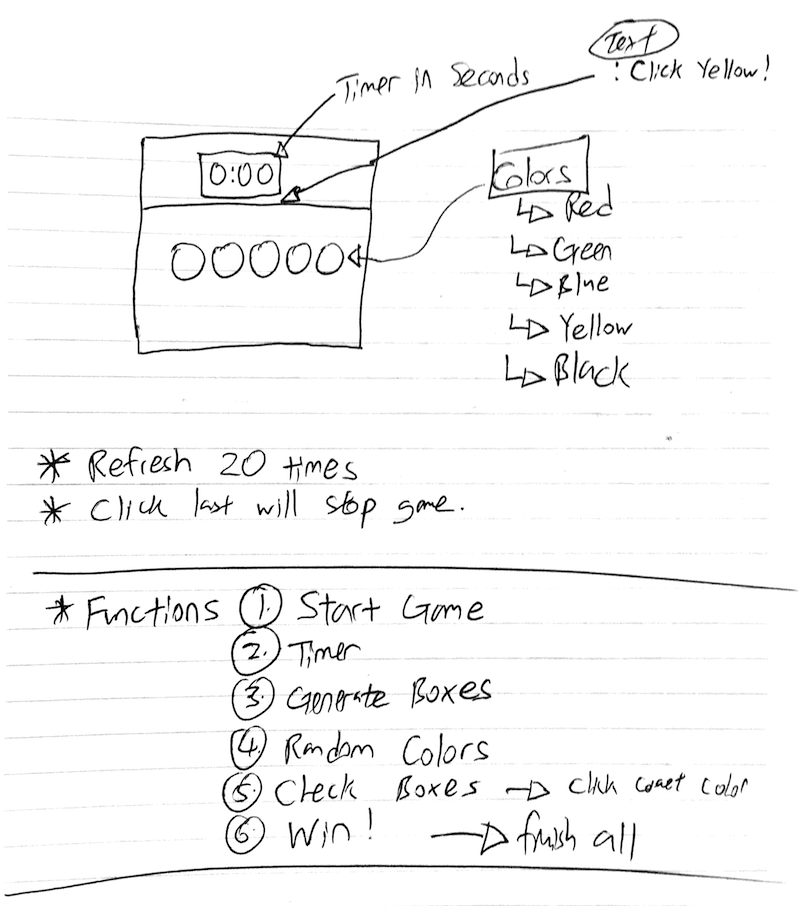 Text
: Click Yellow!
Timer in Seconds
0:00
Colors
Red
Green
Blue
Yellow
Black
* Refresh 20 times
* Click last will stop game.
* Functions 1. Start Game
2. Timer
3. Generate Boxes
4. Random Colors
5. Check Boxes → click correct color
6. Win! → finish all